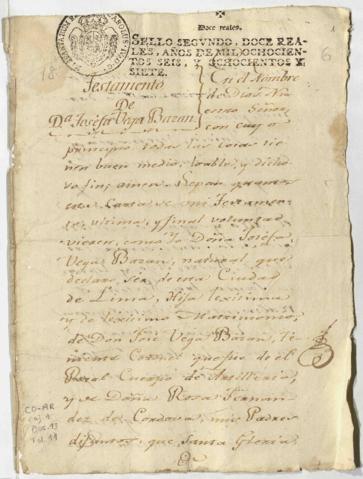 Doce reales.
SELLO SEGVNDO, DOCE REA-
LES, AÑOS DE MIL OCHOCIEN-
TOS SEIS, Y OCHOCIENTOS
SIETE.
18
6
Testamento
De
Da. Josefa Vega Bazan.
En el Nombre
de Dios Nu
estro Señor,
con cuyo
principio todas las cosas tie
nen buen medio, loable, y dicho
so fin; amen. Sepan quantos
esta Carta de mi Testamen
to, ultima, y final voluntad
vieren, como Yo Doña Josefa
Vega Bazan, natural que
declaro ser de esta Ciudad
de Lima, Hija lexitima
y de lexitimo Matrimonio,
de Don José Vega Bazan, Te
niente Coronel que fue de el
Real Cuerpo de Artilleria,
y de Doña Rosa Fernan
dez de Cordova, mis Padres
difuntos, que Santa Gloria
CO-AR